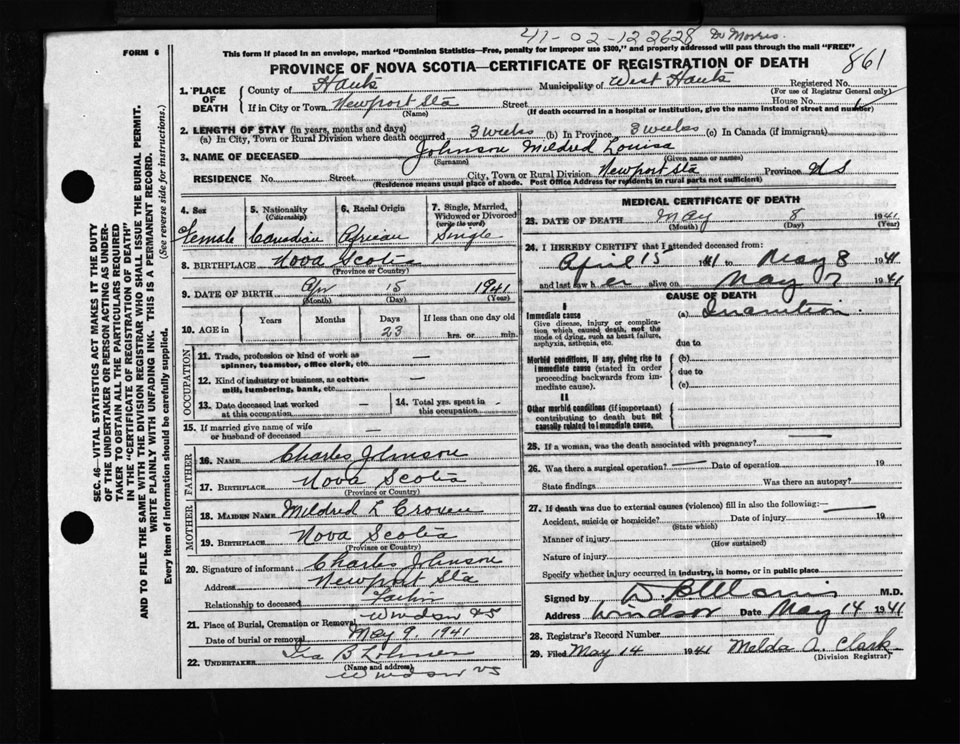 41-02-12 2628 Dr Morris.
FORM 6
This form if placed in an envelope, marked "Dominion Statistics—Free, penalty for improper use $300," and properly addressed will pass through the mail "FREE"
PROVINCE OF NOVA SCOTIA—CERTIFICATE OF REGISTRATION OF DEATH
861
1. PLACE OF DEATH
County of Hants Municipality of West Hants Registered No.
(For use of Registrar General only)
If in City or Town Newport Sta Street House No.
(Name) (If death occurred in a hospital or institution, give the name instead of street and number)
2. LENGTH OF STAY (in years, months and days)
(a) In City, Town or Rural Division where death occurred 3 weeks (b) In Province 3 weeks (c) In Canada (if immigrant)
3. NAME OF DECEASED Johnson Mildred Louisa
(Surname) (Given name or names)
RESIDENCE No. Street City, Town or Rural Division Newport Sta Province N S
(Residence means usual place of abode. Post Office Address for residents in rural parts not sufficient)
4. Sex
Female
5. Nationality
(Citizenship)
Canadian
6. Racial Origin
African
7. Single, Married, Widowed or Divorced
(write the word)
Single
8. BIRTHPLACE Nova Scotia
(Province or Country)
9. DATE OF BIRTH Apr 15 1941
(Month) (Day) (Year)
10. AGE in
Years Months Days If less than one day old
23 hrs. or min.
OCCUPATION
11. Trade, profession or kind of work as spinner, teamster, office clerk, etc. —
12. Kind of industry or business, as cotton-mill, lumbering, bank, etc. —
13. Date deceased last worked at this occupation —
14. Total yrs. spent in this occupation -
15. If married give name of wife or husband of deceased
FATHER
16. NAME Charles Johnson
17. BIRTHPLACE Nova Scotia
(Province or Country)
MOTHER
18. MAIDEN NAME Mildred L Croxen
19. BIRTHPLACE Nova Scotia
(Province or Country)
20. Signature of informant Charles Johnson
Address Newport Sta
Relationship to deceased Father
21. Place of Burial, Cremation or Removal Windsor NS
Date of burial or removal May 9, 1941
22. UNDERTAKER Ira B
(Name and address)
Windsor NS
MEDICAL CERTIFICATE OF DEATH
23. DATE OF DEATH May 8 1941
(Month) (Day) (Year)
24. I HEREBY CERTIFY that I attended deceased from:
April 15 1941 to May 8 1941
and last saw her alive on May 7 1941
CAUSE OF DEATH
I
Immediate cause
Give disease, injury or complication which caused death, not the mode of dying, such as heart failure, asphyxia, asthenia, etc.
(a) Inanition
due to
Morbid conditions, if any, giving rise to immediate cause (stated in order proceeding backwards from immediate cause).
(b)
due to
(c)
II
Other morbid conditions (if important) contributing to death but not causally related to immediate cause.
25. If a woman, was the death associated with pregnancy? —
26. Was there a surgical operation? — Date of operation 19
State findings Was there an autopsy?
27. If death was due to external causes (violence) fill in also the following: —
Accident, suicide or homicide? Date of injury 19
(State which)
Manner of injury
(How sustained)
Nature of injury
Specify whether injury occurred in industry, in home, or in public place
Signed by M.D.
Address Windsor Date May 14 1941
28. Registrar's Record Number
29. Filed May 14 1941 Melda A. Clark
(Division Registrar)
SEC. 46—VITAL STATISTICS ACT MAKES IT THE DUTY
OF THE UNDERTAKER OR PERSON ACTING AS UNDER-
TAKER TO OBTAIN ALL THE PARTICULARS REQUIRED
IN THE "CERTIFICATE OF REGISTRATION OF DEATH"
AND TO FILE THE SAME WITH THE DIVISION REGISTRAR WHO SHALL ISSUE THE BURIAL PERMIT.
WRITE PLAINLY WITH UNFADING INK. THIS IS A PERMANENT RECORD.
Every item of information should be carefully supplied. (See reverse side for instructions.)